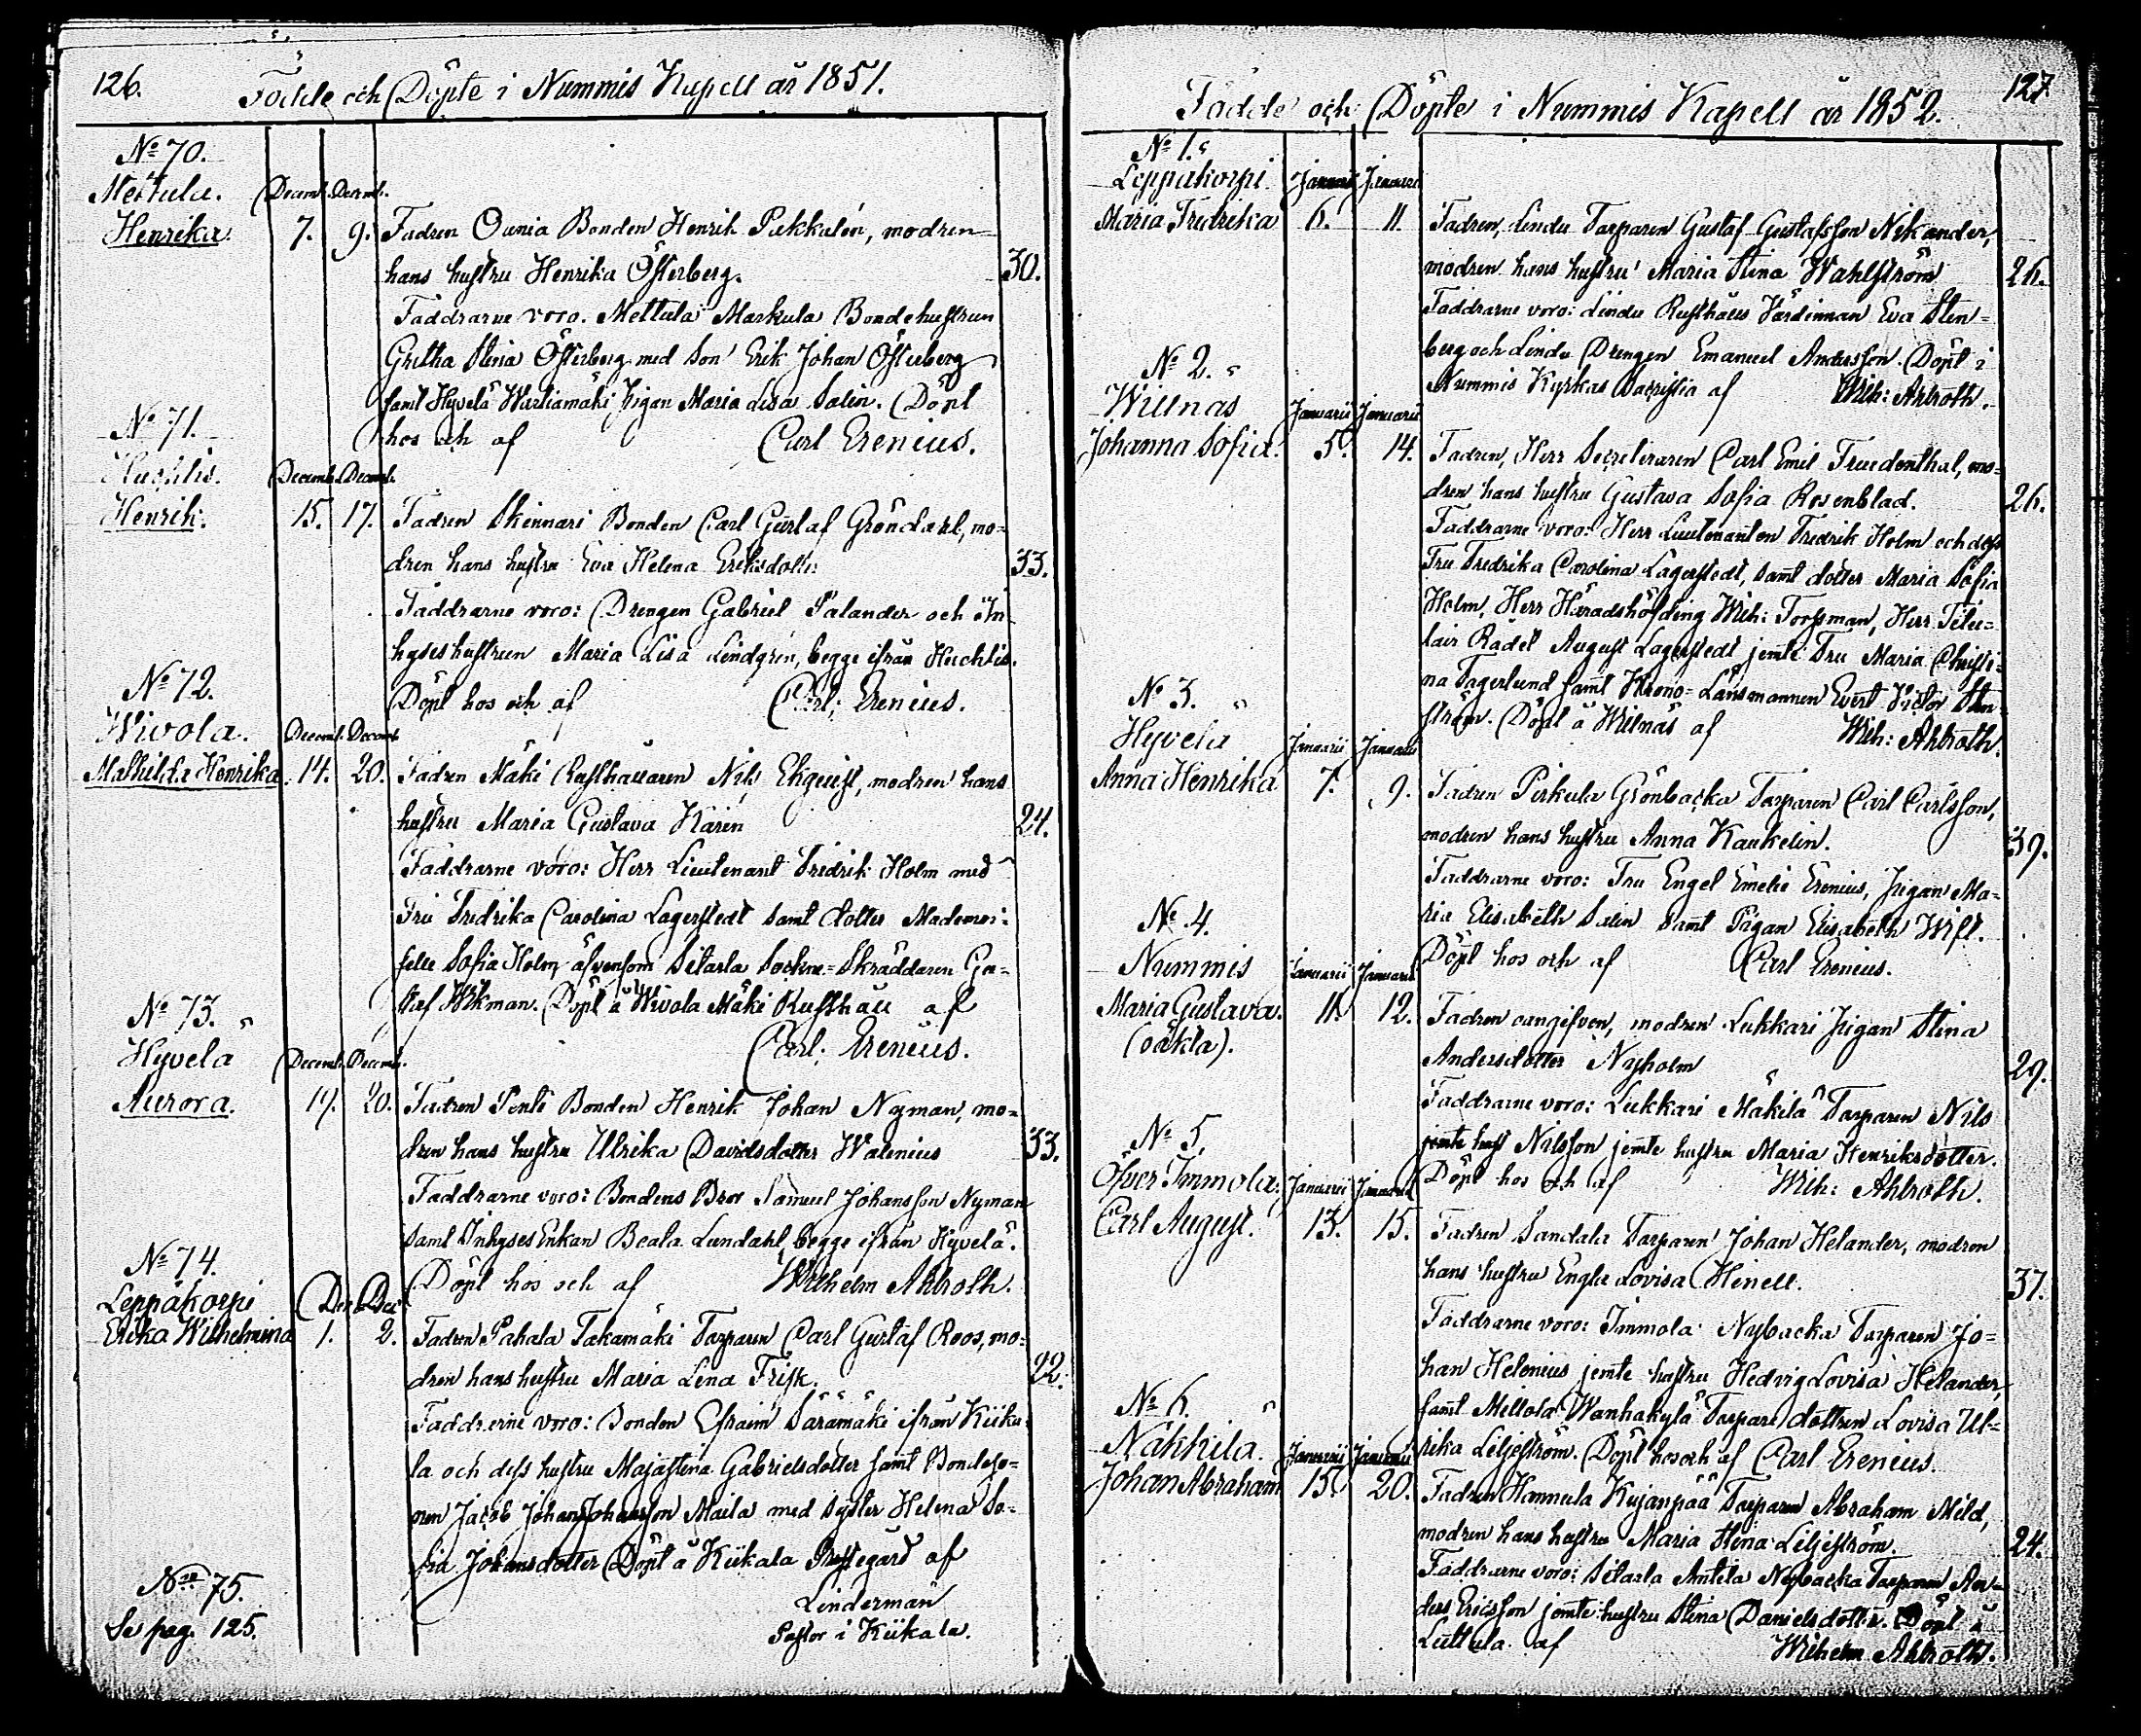 126.
Födde och Döpte i Nummis Kapell år 1851.
No 70.
Mettula. Decemb. Decemb.
Henrika. 7. 9. Fadren Ounia Bonden Henrik Pakkalén, modren
hans hustru Henrika Österberg. 30.
Faddrarne voro. Mettula Markula Bondehustrun
Gretha Stina Österberg med Son Erik Johan Österberg
samt Hyvelä Wartiamäki Pigan Maria Lisa Salin. Döpt
hos och af Carl Erenius.
No 71.
Huhtis. Decemb. Decemb.
Henrik. 15. 17. Fadren Skinnari Bonden Carl Gustaf Gröndahl, mo=
dren hans hustru Eva Helena Eriksdotter 33.
Faddrarne voro: Drengen Gabriel Salander och In-
hyseshustrun Maria Lisa Lindgrén, begge ifrån Huchtis.
Döpt hos och af Carl: Erenius.
No 72.
Wivola. Decemb. Decemb.
Mathilda Henrika. 14. 20. Fadren Mäki Rusthållaren Nils Ekquist, modren hans
hustru Maria Gustava Karén 24.
Faddrarne voro: Herr Lieutenant Fredrik Holm med
Fru Fredrika Carolina Lagerstedt samt dotter Mademoi=
selle Sofia Holm äfvensom Sitarla Sockne=Skräddaren Gu=
staf Wikman. Döpt å Wivola Mäki Rusthåll af
Carl: Erenius.
No 73.
Hyvelä Decemb. Decemb.
Aurora. 19. 20. Fadren Penti Bonden Henrik Johan Nyman, mo=
dren hans hustru Ulrika Davidsdotter Walenius 33.
Faddrarne voro: Bondens Bror Samuel Johansson Nyman
samt Inhyses Enkan Beata Lundahl, begge ifrån Hyvelä.
Döpt hos och af Wilhelm Ahlroth.
No 74.
Leppäkorpi Dec Dec
Erika Wilhelmina 1. 2. Fadren Pahala Takamäki Torparen Carl Gustaf Roos, mo=
dren hans hustru Maria Lena Frisk. 22.
Faddrarne voro: Bonden Efraim Säramäki ifrån Kiika=
la och dess hustru Majastina Gabrielsdotter samt Bondeso=
nen Jacob Johan Johansson Maila med syster Helena So=
fia Johansdotter Döpt å Kiikala Prestegård af
Linderman
Pastor i Kiikala.
No 75.
Se pag. 125.
127
Födde och Döpte i Nummis Kapell år 1852.
No 1.
Leppäkorpi Januari Januari
Maria Fredrika 6. 11. Fadren, Lindu Torparen Gustaf Gustafsson Nikander,
modren hans hustru Maria Stina Wahlström 26.
Faddrarne voro: Lindu Rusthålls Värdinnan Eva Sten=
berg och Lindu Drengen Emanuel Andersson. Döpt i
Nummis Kyrkas Sacristia af Wilh: Ahlroth.
No 2.
Willnäs Januarii Januarii
Johanna Sofia. 5. 14. Fadren, Herr Secreteraren Carl Emil Truedenthal, mo=
dren hans hustru Gustava Sofia Rosenblad. 26.
Faddrarne voro: Herr Lieutenanten Fredrik Holm och dess
Fru Fredrika Carolina Lagerstedt, samt dotter Maria Sofia
Holm, Herr Häradshöfding Wilh: Forssman, Herr Titu=
lair Rådet August Lagerstedt jemte Fru Maria Christi=
na Fagerlund samt Krono=Länsmannen Evert Victor Sten
ström. Döpt å Wilnäs af Wilh: Ahlroth.
No 3.
Hyvelä Januarii Januarii
Anna Henrika 7. 9. Fadren Pirkula Grönbacka Torparen Carl Carlsson,
modren hans hustru Anna Kaukelin. 39.
Faddrarne voro: Fru Engel Emelie Erenius, Pigan Ma=
ria Elisabeth Salin samt Pigan Elisabeth Wist.
Döpt hos och af Carl Erenius.
No 4.
Nummis Januarii Januarii
Maria Gustava. 11. 12. Fadren oangifven, modren Lukkari Pigan Stina
(oäkta).
Andersdotter Nyholm 29.
Faddrarne voro: Lukkari Mäkilä Torparen Nils
jemte hust Nilsson jemte hustru Maria Henriksdotter.
Döpt hos och af Wilh: Ahlroth.
No 5.
Öfver Immola. Januarii Januarii
Carl August. 13. 15. Fadren Sandala Torparen Johan Helander, modren
hans hustru Engla Lovisa Hinell. 37.
Faddrarne voro: Immola Nybacka Torparen Jo=
han Helenius jemte hustru Hedvig Lovisa Helander,
samt Millola Wanhakylä Torpare dottren Lovisa Ul=
rika Liljeström. Döpt hos och af Carl Erenius.
No 6.
Näkkilä. Januarii Januarii
Johan Abraham 15. 20. Fadren Hannula Kujanpää Torparen Abraham Mild,
modren hans hustru Maria Stina Liljeström. 24.
Faddrarne voro: Sitarla Anttila Nybacka Torparen An=
ders Ericsson jemte hustru Stina Danielsdotter. Döpt å
Luttula af Wilhelm Ahlroth.